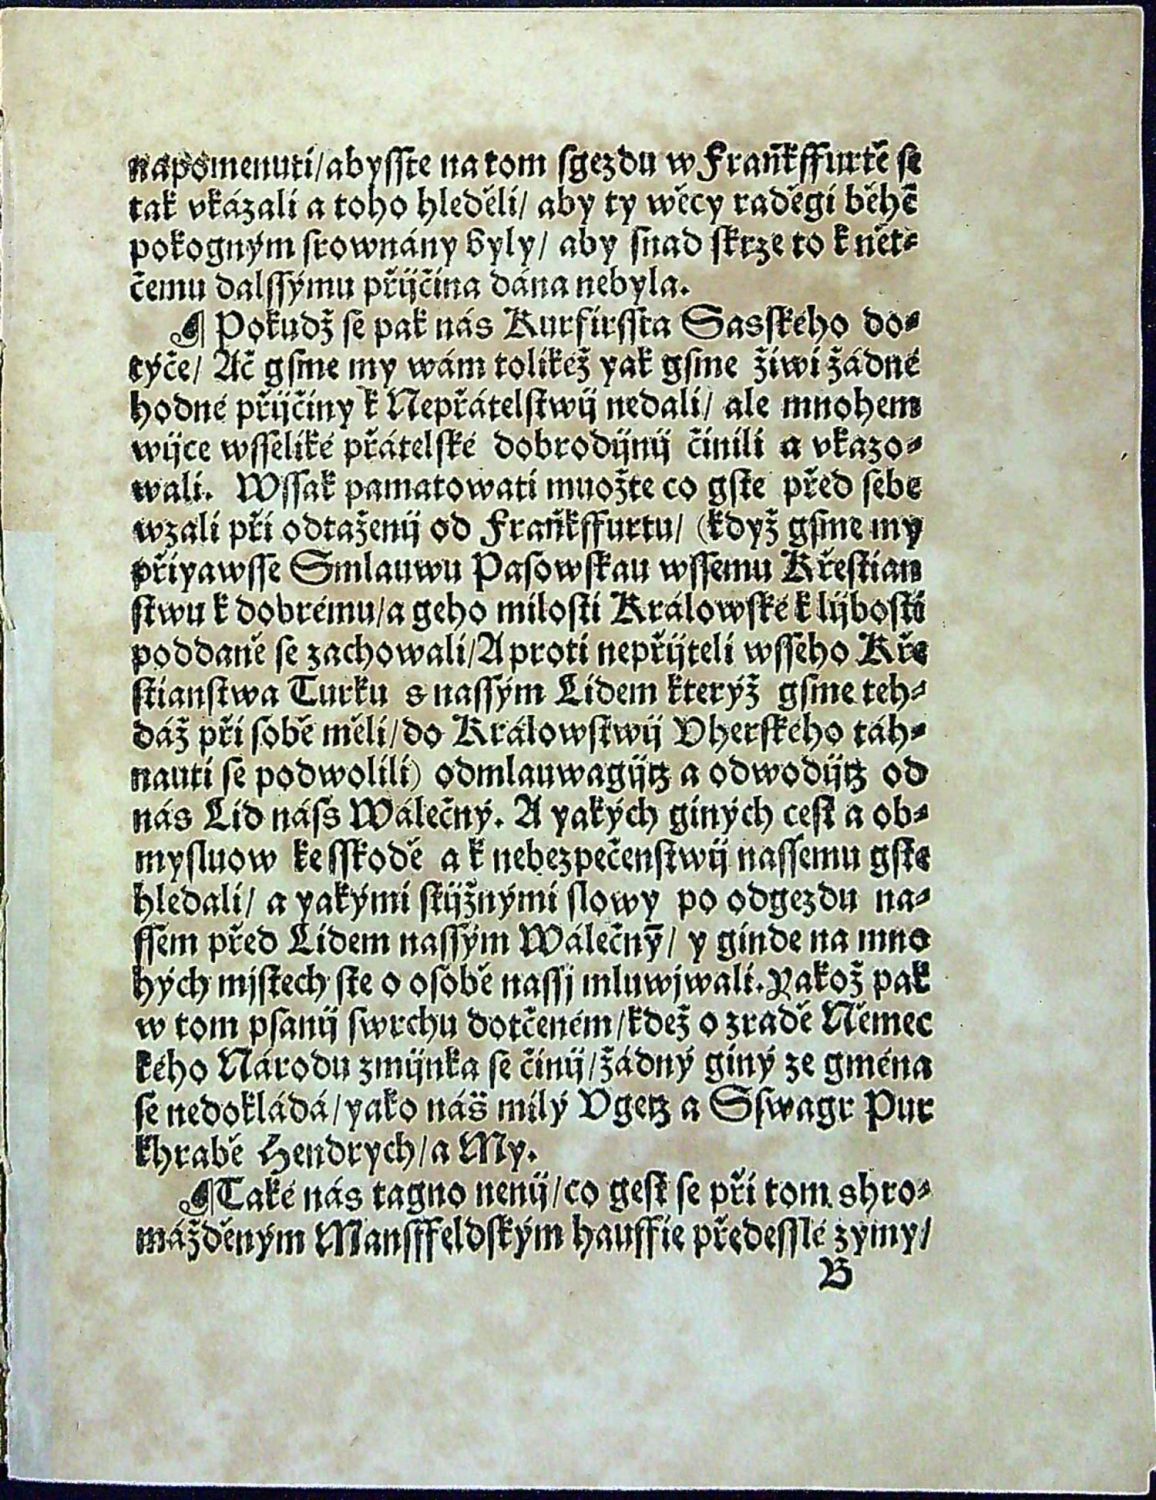 napomenuti/abysste na tom sgezdu w Fran̄kffurtě se
tak vkázali a toho hleděli/ aby ty wěcy raděgi běhē
pokogným srownány byly/ aby snad skrze to k nět⸗
čemu dalssýmu přijčina dána nebyla.
¶ Pokudž se pak nás Kurfirssta Sasského do⸗
týče/ Ač gsme my wám tolikéž yak gsme žiwi žádné
hodné přijčiny k Nepřátelstwij nedali/ ale mnohem
wijce wsseliké přátelské dobrodijnij činili a vkazo⸗
wali. Wssak pamatowati muožte co gste před sebe
wzali při odtaženij od Fran̄kffurtu/ (když gsme my
přiyawsse Smlauwu Pasowskau wssemu Křestian
stwu k dobrému/a geho milosti Králowské k lijbosti
poddaně se zachowali/A proti nepřijteli wsseho Kře
stianstwa Turku s nassým Lidem kterýž gsme teh⸗
dáž při sobě měli/do Králowstwij Vherského táh⸗
nauti se podwolili) odmlauwagijtz a odwodijtz od
nás Lid náss Wálečný. A yakých giných cest a ob⸗
mysluow ke sskodě a k nebezpečenstwij nassemu gste
hledali/ a yakými stijžnými slowy po odgezdu na⸗
ssem před Lidem nassým Wálečnȳ/ y ginde na mno
hých mjstech ste o osobě nassj mluwjwali.Yakož pak
w tom psanij swrchu dotčeném/kdež o zradě Němec
kého Národu zmijnka se činij/žádný giný ze gména
se nedokládá/yako náš milý Vgetz a Sswagr Pur
khrabě Hendrych/a My.
¶Také nás tagno nenij/co gest se při tom shro⸗
mážděným Mansffeldským hauffie předesslé zýmy/
B